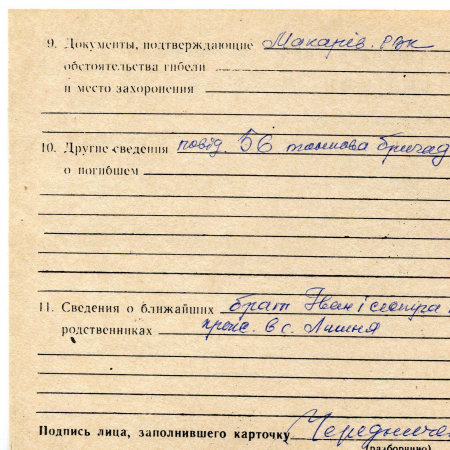 9. Документы, подтверждающие Макарів. РВК
обстоятельства гибели
и место захоронения
10. Другие сведения повід. 56 танкова бригад
о погибшем
11. Сведения о ближайших брат Іван і сестра
родственниках прож. в с. Лишня
Подпись лица, заполнившего карточку Чередниче
(разборчиво)